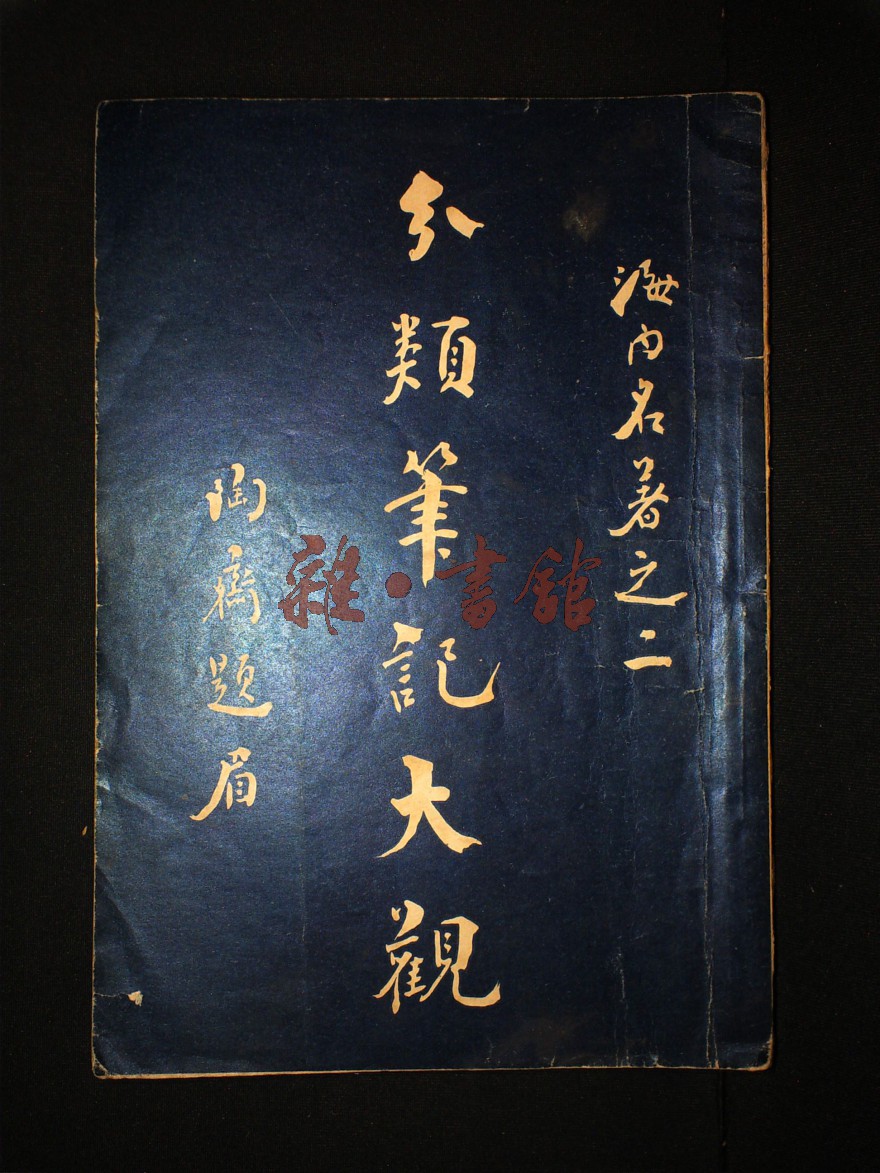 海内名著之二
分類筆記大觀
陶齋題眉
雜·書館